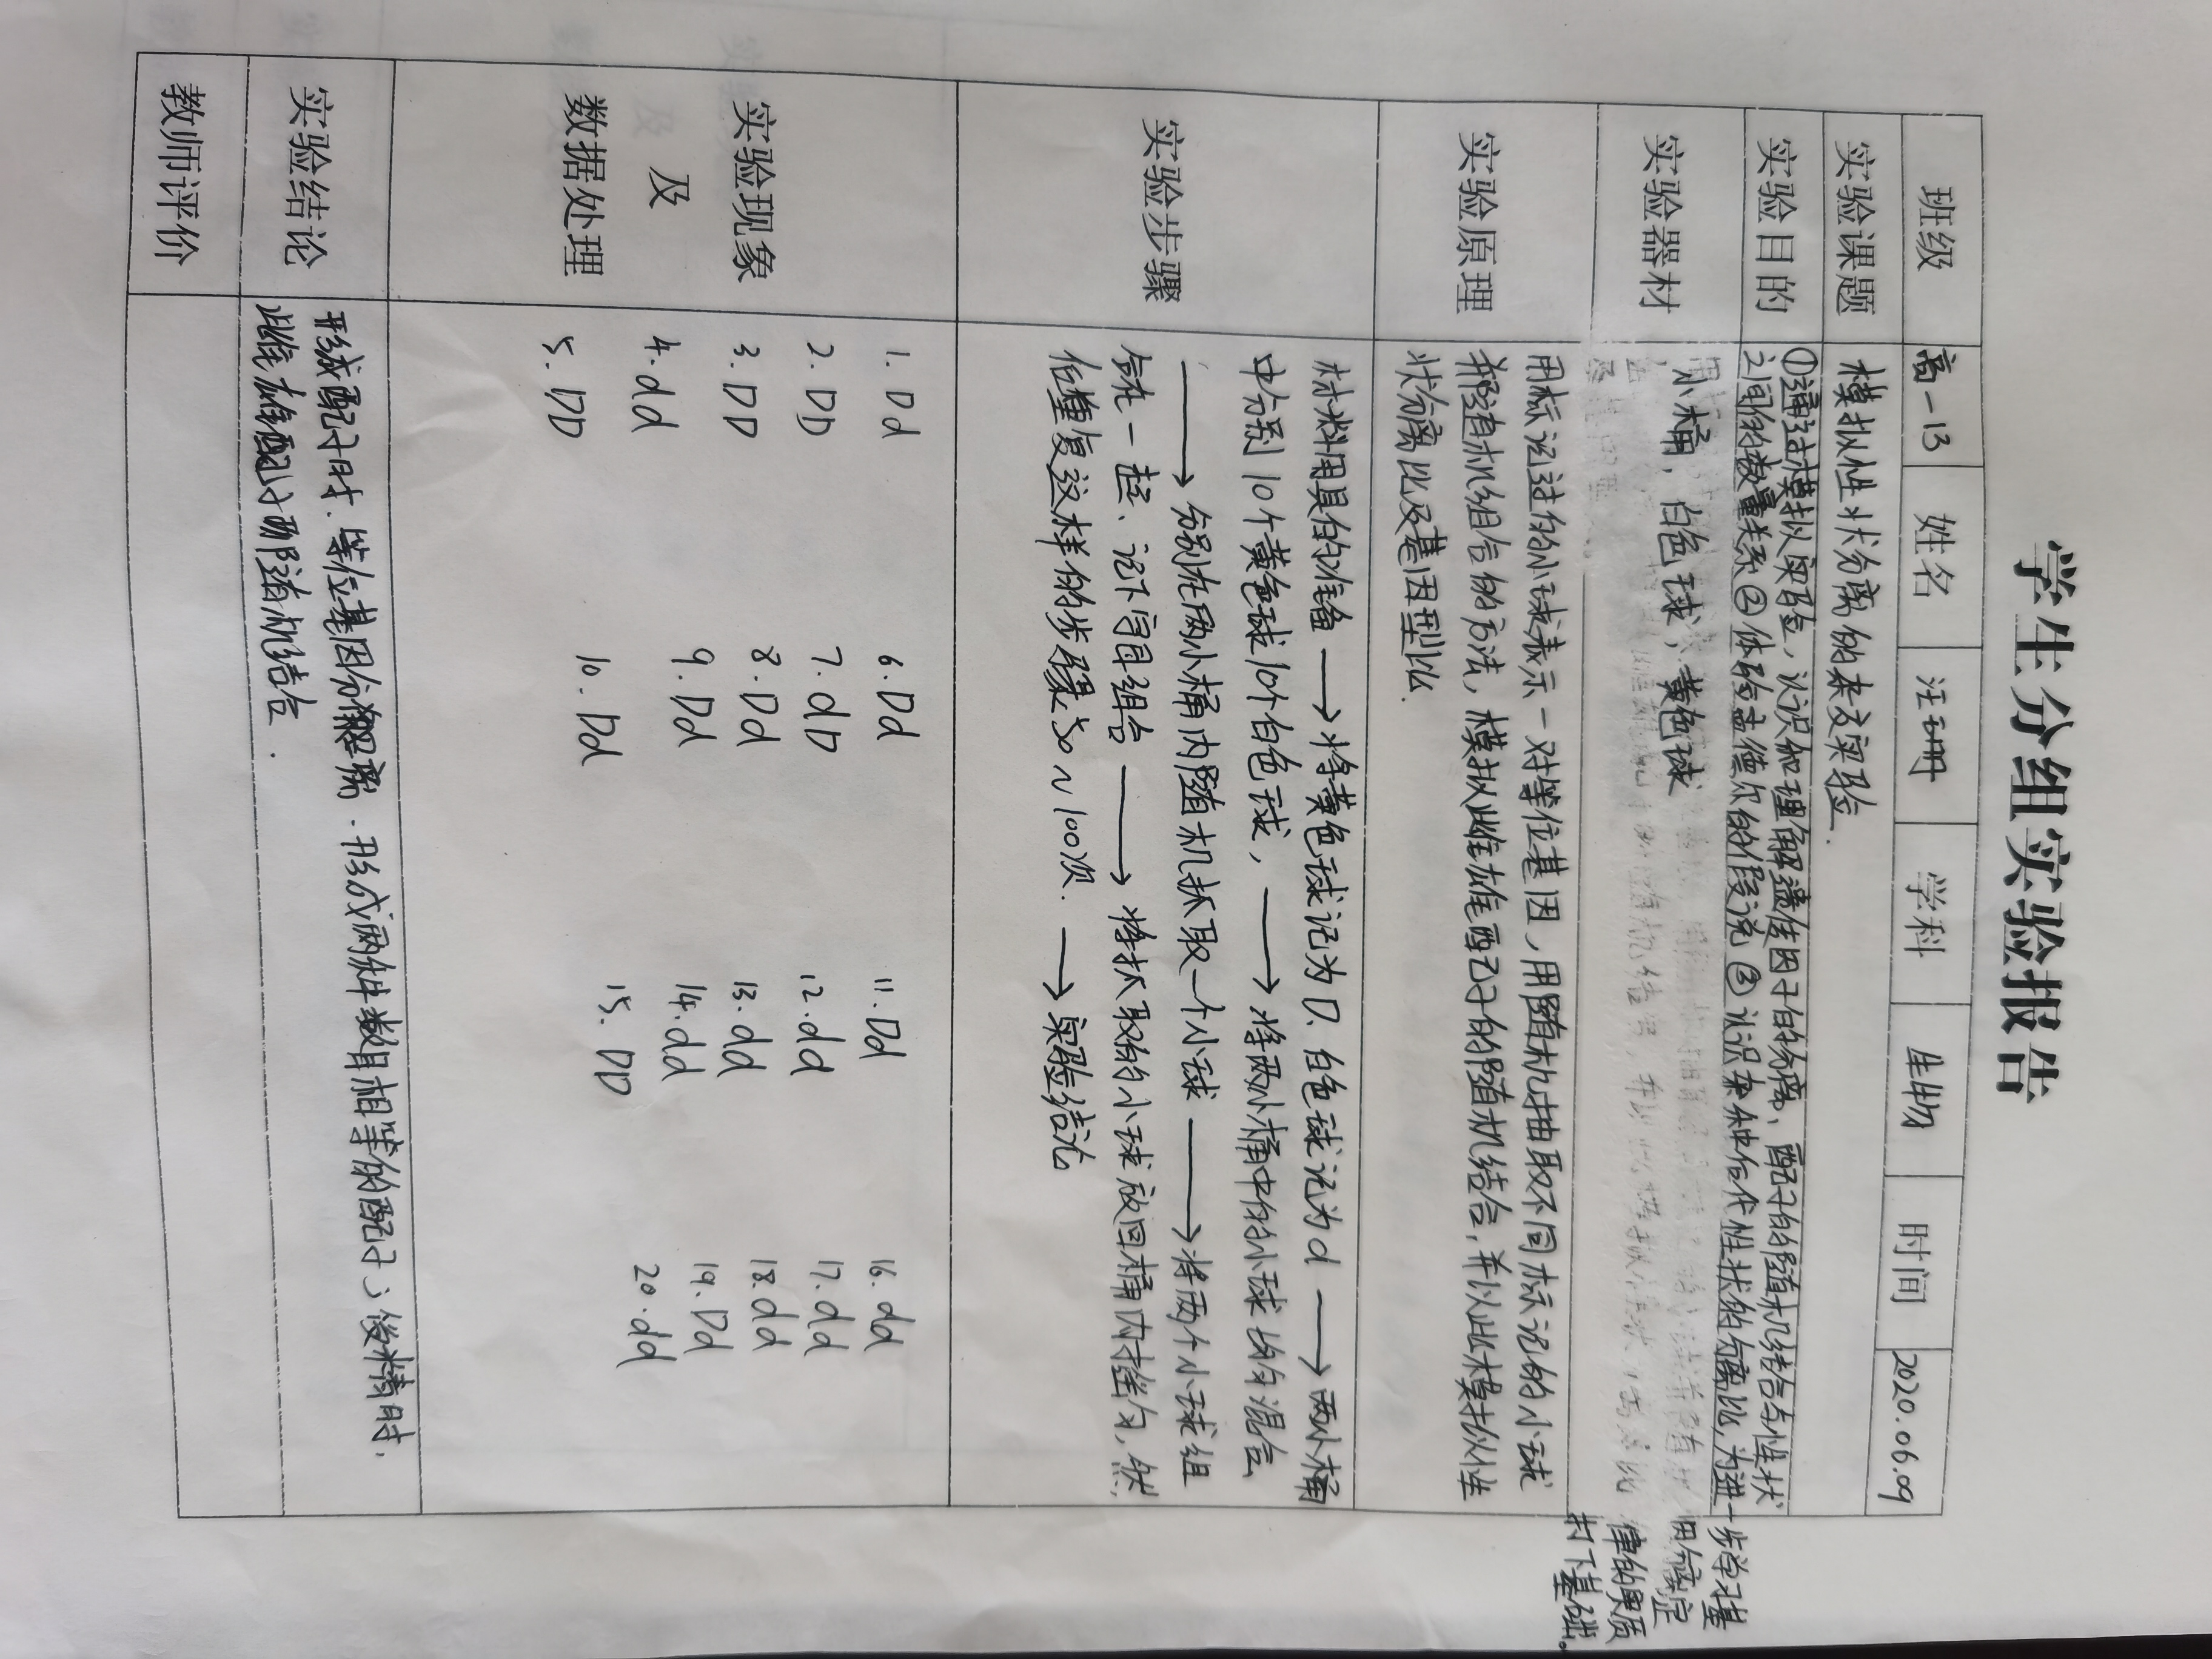 学生分组实验报告
班级 高一13 姓名 汪玥 学科 生物 时间 2020.06.09
实验课题 模拟性状分离的杂交实验.
实验目的
①通过模拟实验，认识和理解遗传因子的分离、配子的随机结合与性状
之间的数量关系②体验孟德尔的假说③认识杂种后代性状的分离比，为进一步学习基
因分离定
律的实质
打下基础。
实验器材
小桶，白色球，黄色球
实验原理
用标记过的小球表示一对等位基因，用随机抽取不同标记的小球
并随机组合的方法，模拟雌雄配子的随机结合，并以此模拟性
状分离比及基因型比.
实验步骤
材料用具的准备 → 将黄色球记为D.白色球记为d → 两小桶
中分别10个黄色球10个白色球， → 将两小桶中的小球均匀混合
→ 分别在两小桶内随机抓取一个小球 → 将两个小球组
合在一起、记下字母组合 → 将抓取的小球放回桶内摇匀，然
后重复这样的步骤50~100次. → 实验结论
实验现象
及
数据处理
1. Dd 6. Dd 11. Dd 16. dd
2. DD 7. dD 12. dd 17. dd
3. DD 8. Dd 13. dd 18. dd
4. dd 9. Dd 14. dd 19. Dd
5. DD 10. Dd 15. DD 20. dd
实验结论
形成配子时.等位基因分离.形成两种数目相等的配子；受精时.
雌雄配子随机结合.
教师评价